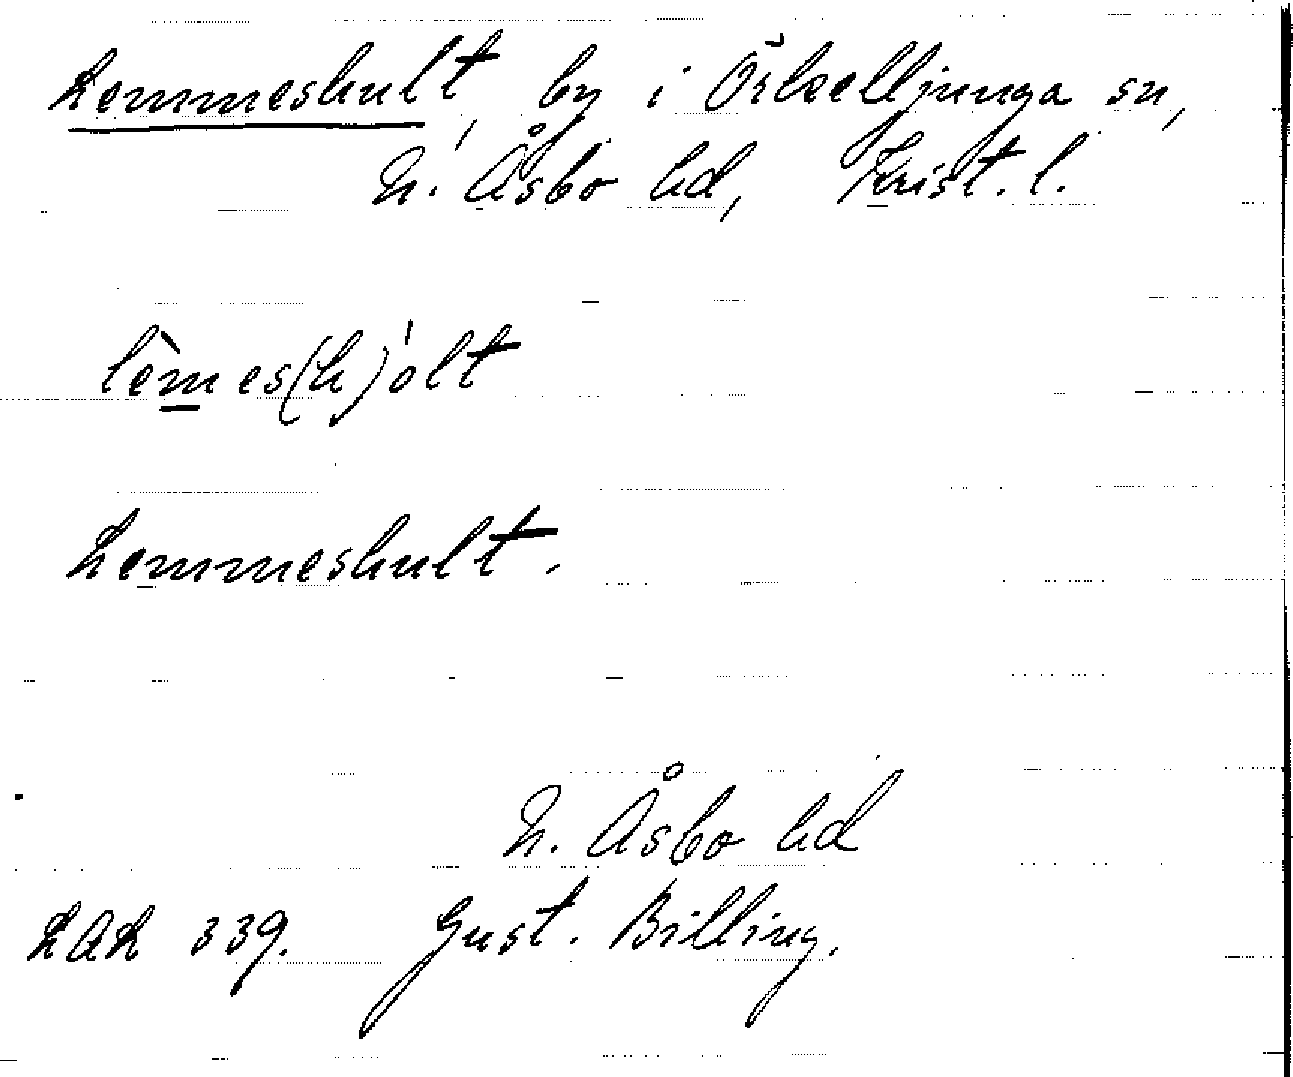 Lemmeshult, by i Örkelljunga sn,
N. Åsbo hd, Krist. l.
lèmes(h)ólt
Lemmeshult.
N. Åsbo hd
LAL 339. Gust. Billing.